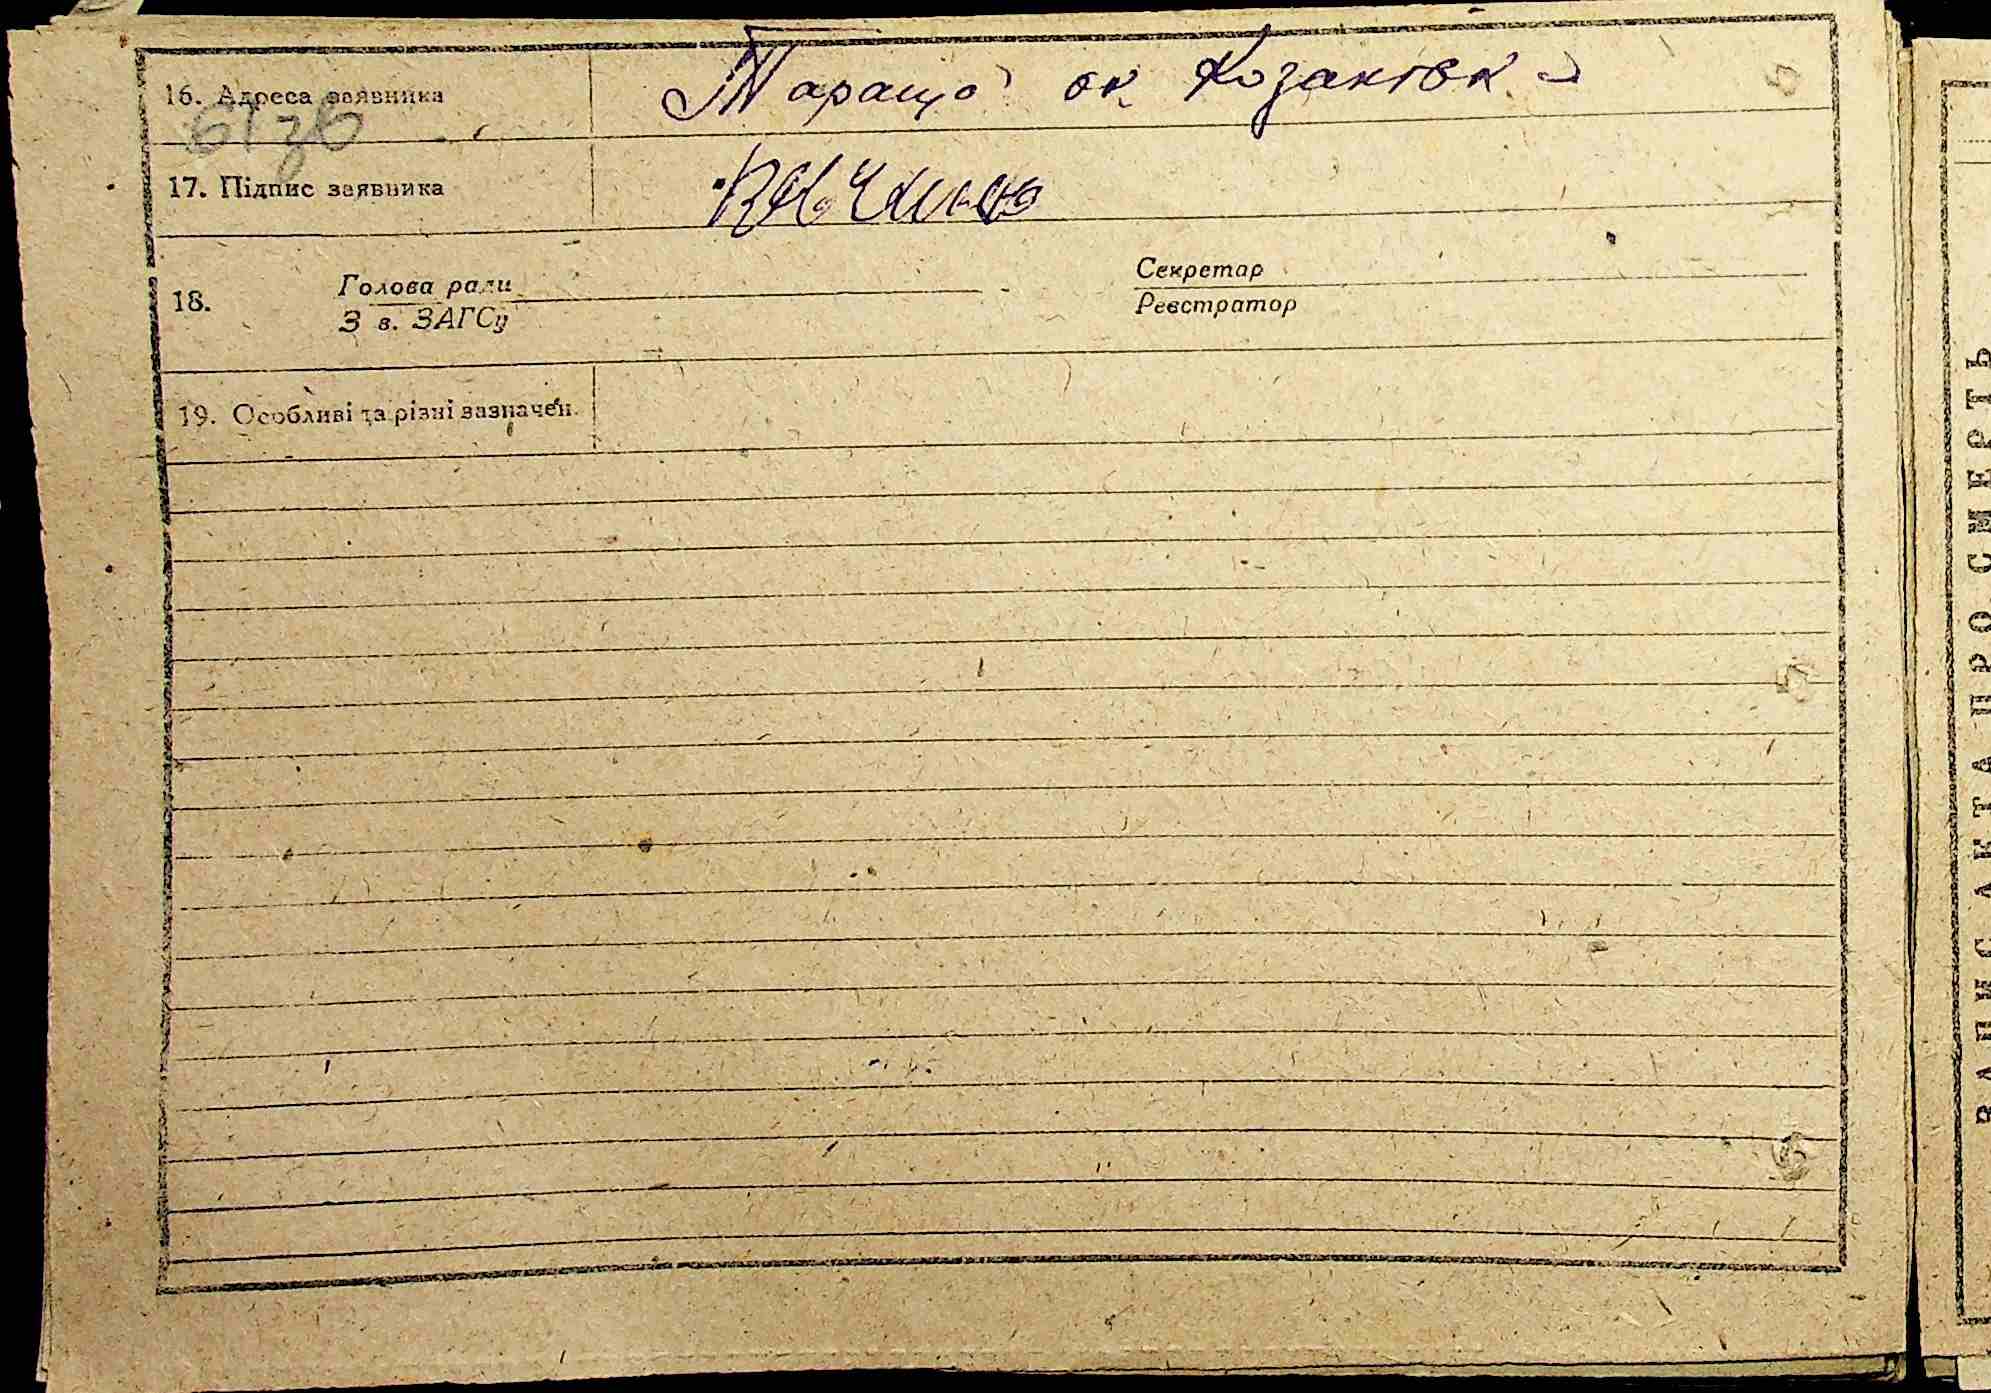 16. Адреса заявника Тараща ок. Козаківка
17. Підпис заявника
18. Голова ради Секретар
З в. ЗАГСу Реєстратор
19. Особливі та різні зазначен.
ЗАПИС АКТА ПРО СМЕРТЬ